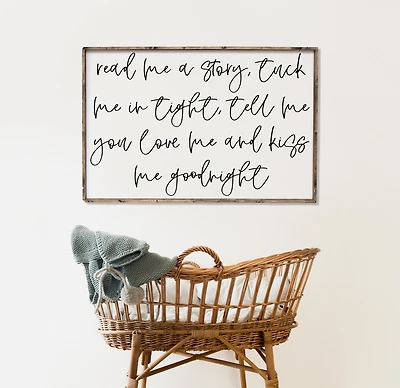 read me a story, tuck
me in tight, tell me
you love me and kiss
me goodnight